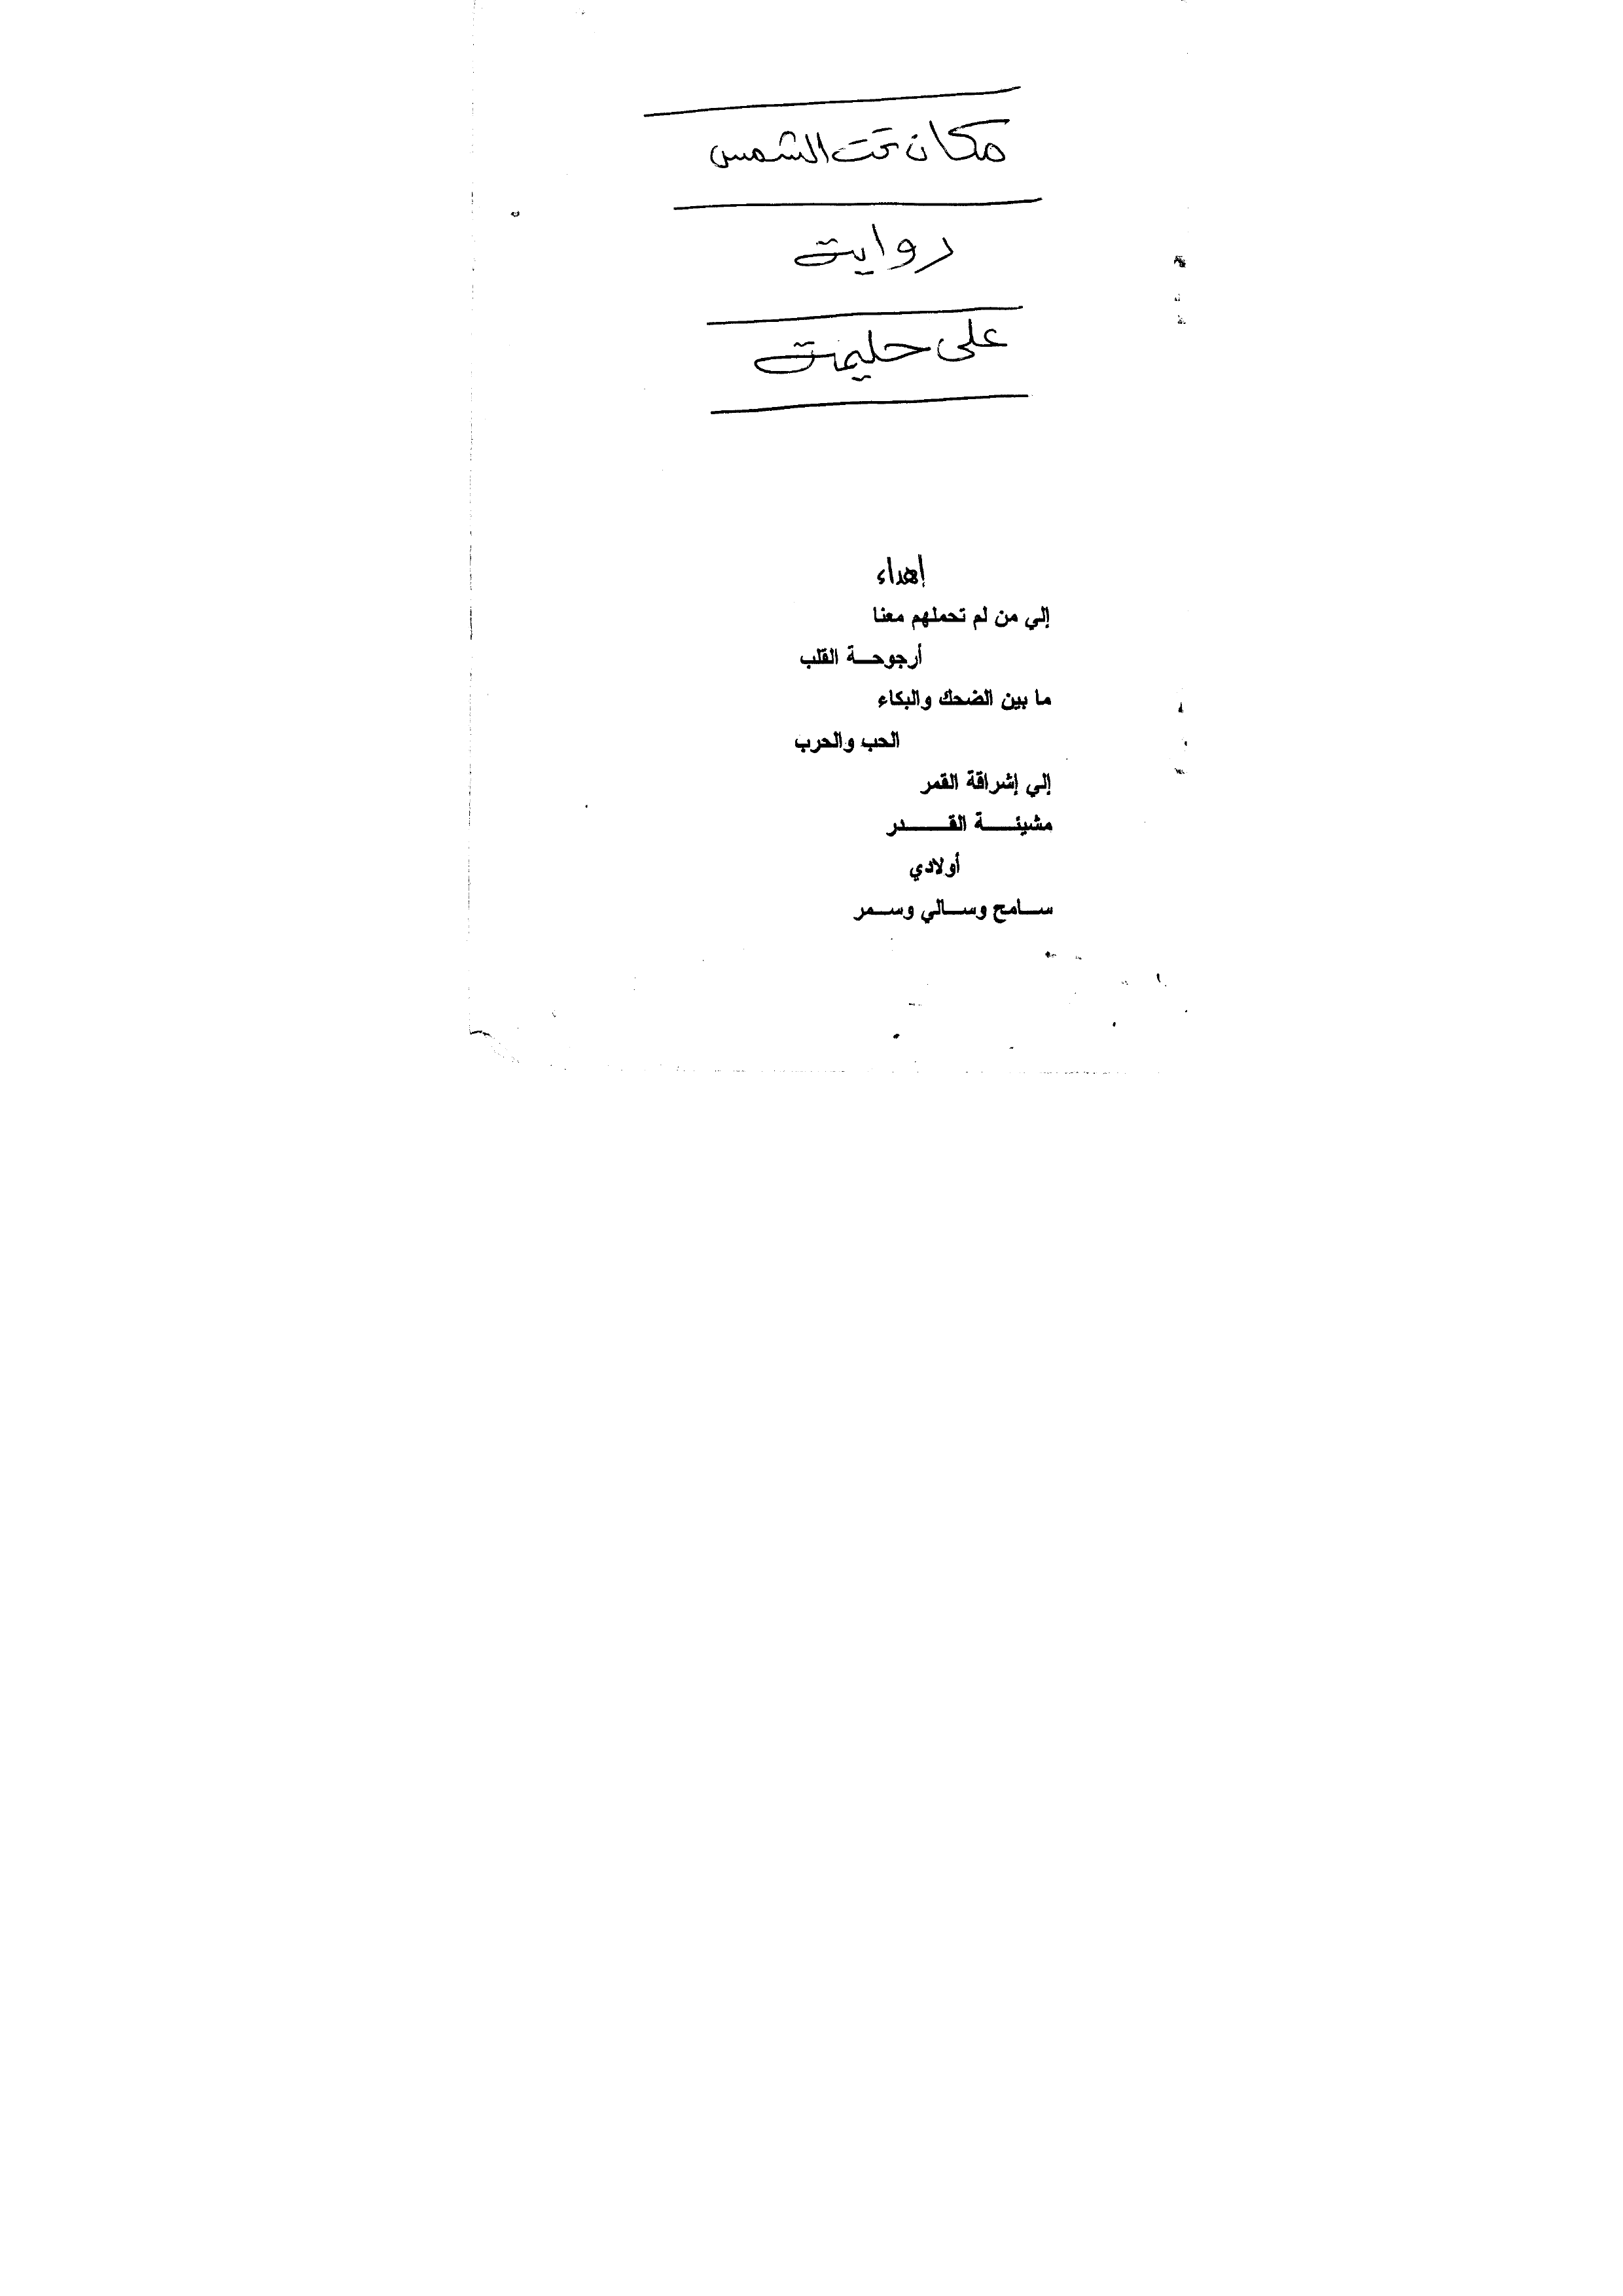 مكان تحت الشمس
رواية
على حليمة
إهداء
إلي من لم تحملهم معنا
أرجوحـة القلب
ما بين الضحك والبكاء
الحب والحرب
إلي إشراقة القمر
مشيئـــة القـــــدر
أولادي
ســامح وســالي وســمر